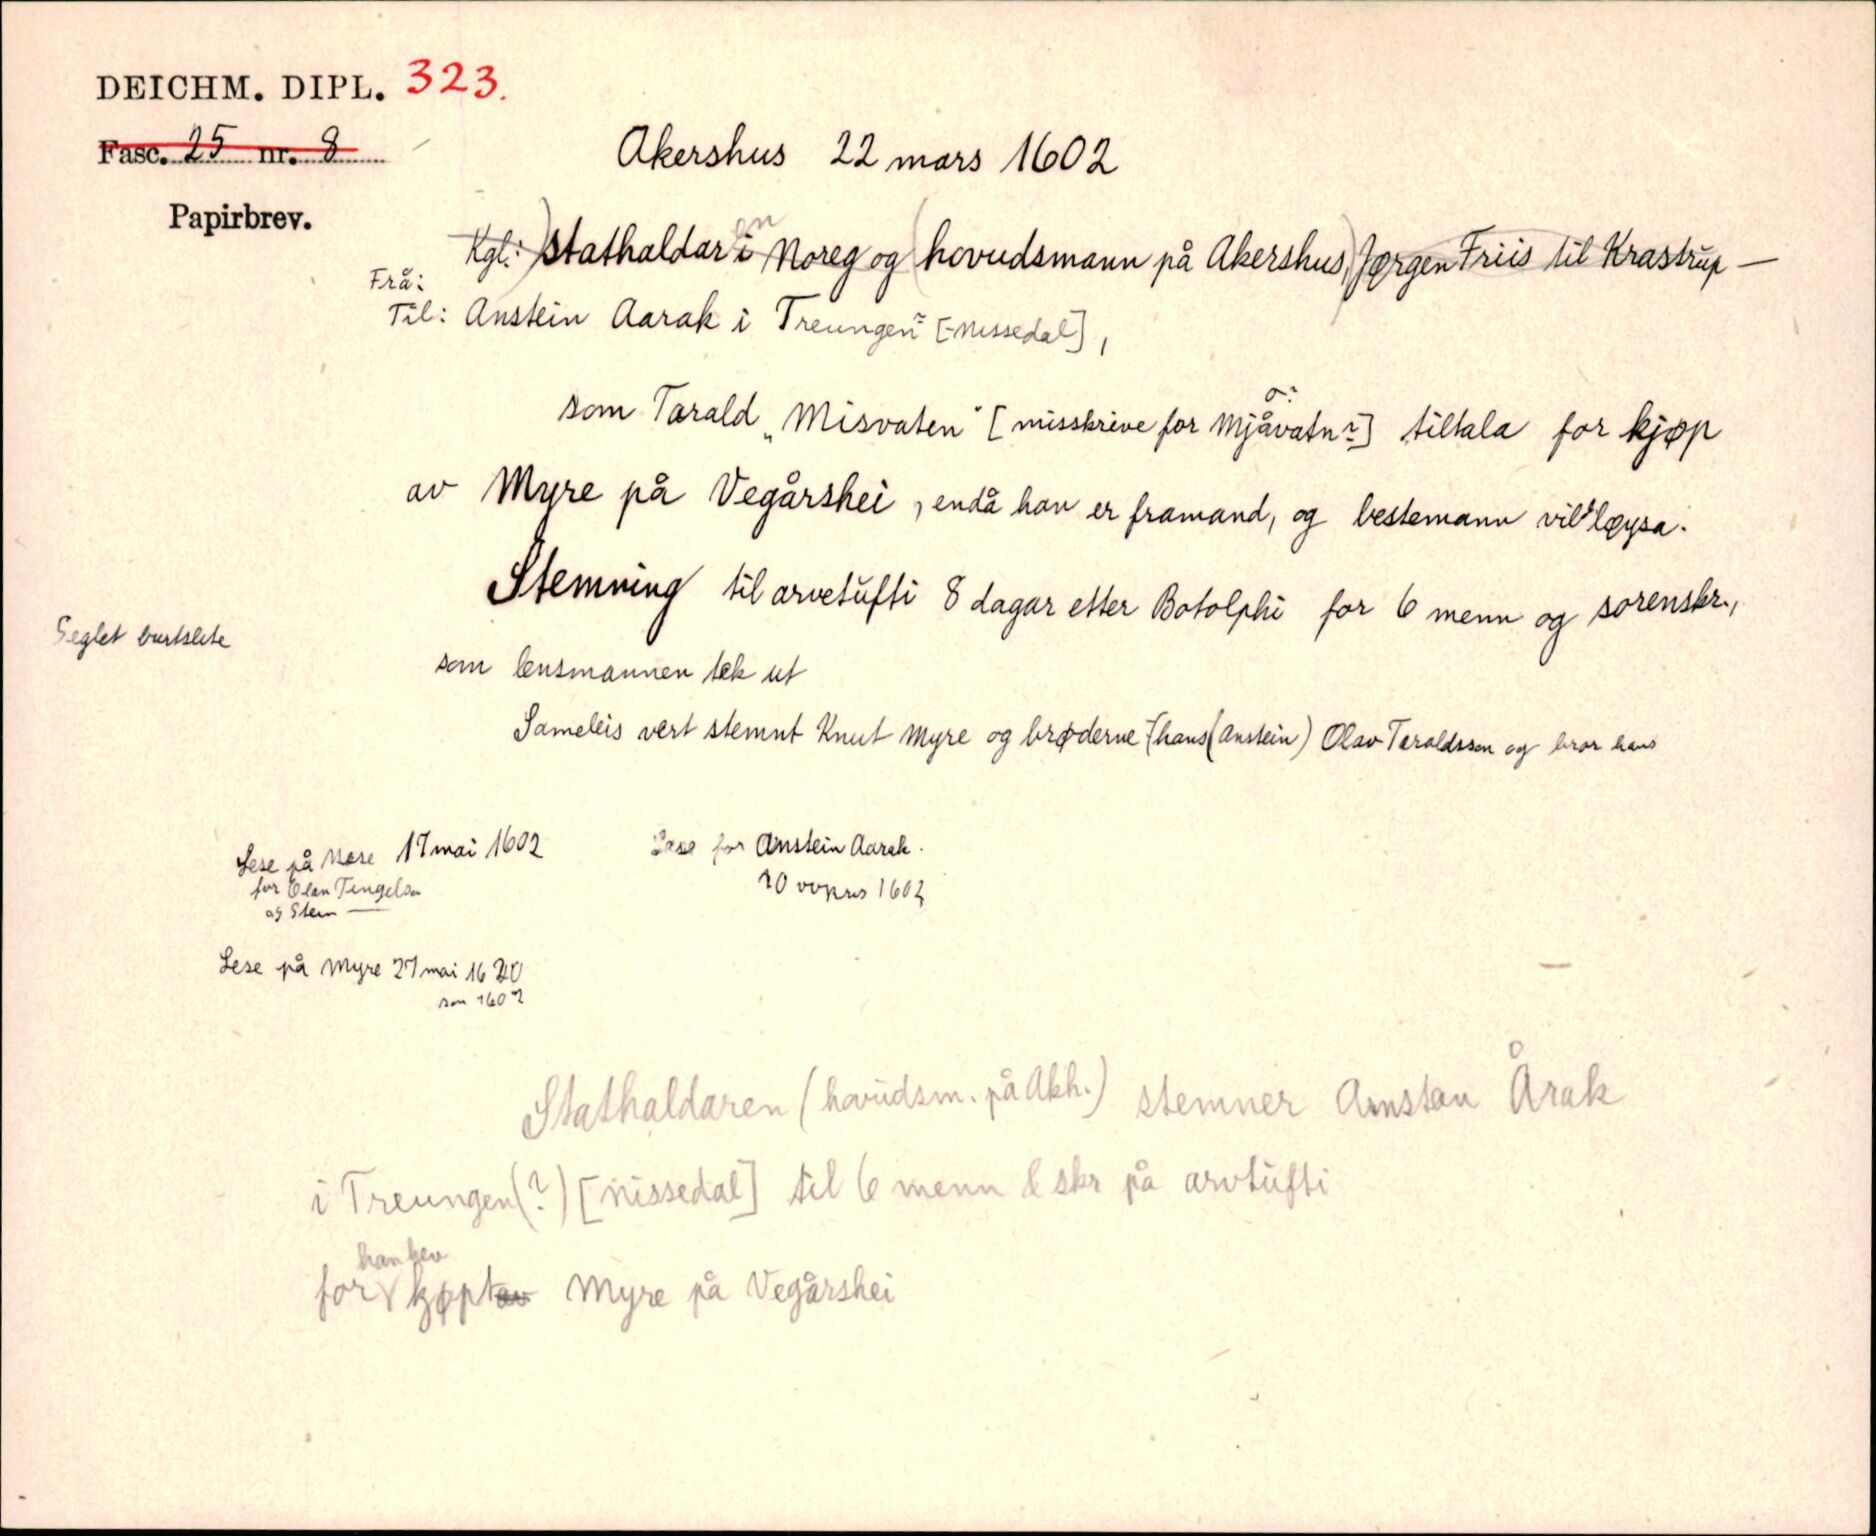 DEICHM. DIPL. 323.
Fasc. 25 nr. 8
Papirbrev.
Akershus 22 mars 1602
Frå: Kgl.) stathaldar i en Noreg og (hovudsmann på Akershus, Jørgen Friis til Krastrup —
Til: Anstein Aarak i Treungen? [Nissedal],
som Tarald „Misvaten" [misskrive for Mjåvatn?] tiltala for kjøp
av Myre på Vegårshei, endå han er framand, og bestemann vil løysa.
Stemning til arvetufti 8 dagar etter Botolphi for 6 menn og sorenskr.,
som lensmannen tek ut
Seglet burtslite
Sameleis vert stemnt Knut Myre og brøderne hans (Anstein) Olav Taraldsson og bror hans
Lese på Nese 17 mai 1602
for Olav Tengelsson
og Stein —
Lese for Anstein Aarak.
1602
Lese på Myre 27 mai 1620
1602
Stathaldaren (hovudsm. på Akh.) stemner Arnstan Årak
i Treungen(?) [Nissedal] til 6 menn & skr på arvtufti
for han hev kjøpt av Myre på Vegårshei